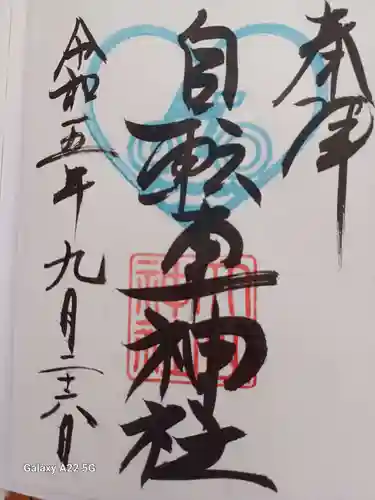 奉拝
自転車神社
令和五年九月二十六日
Galaxy A22 5G